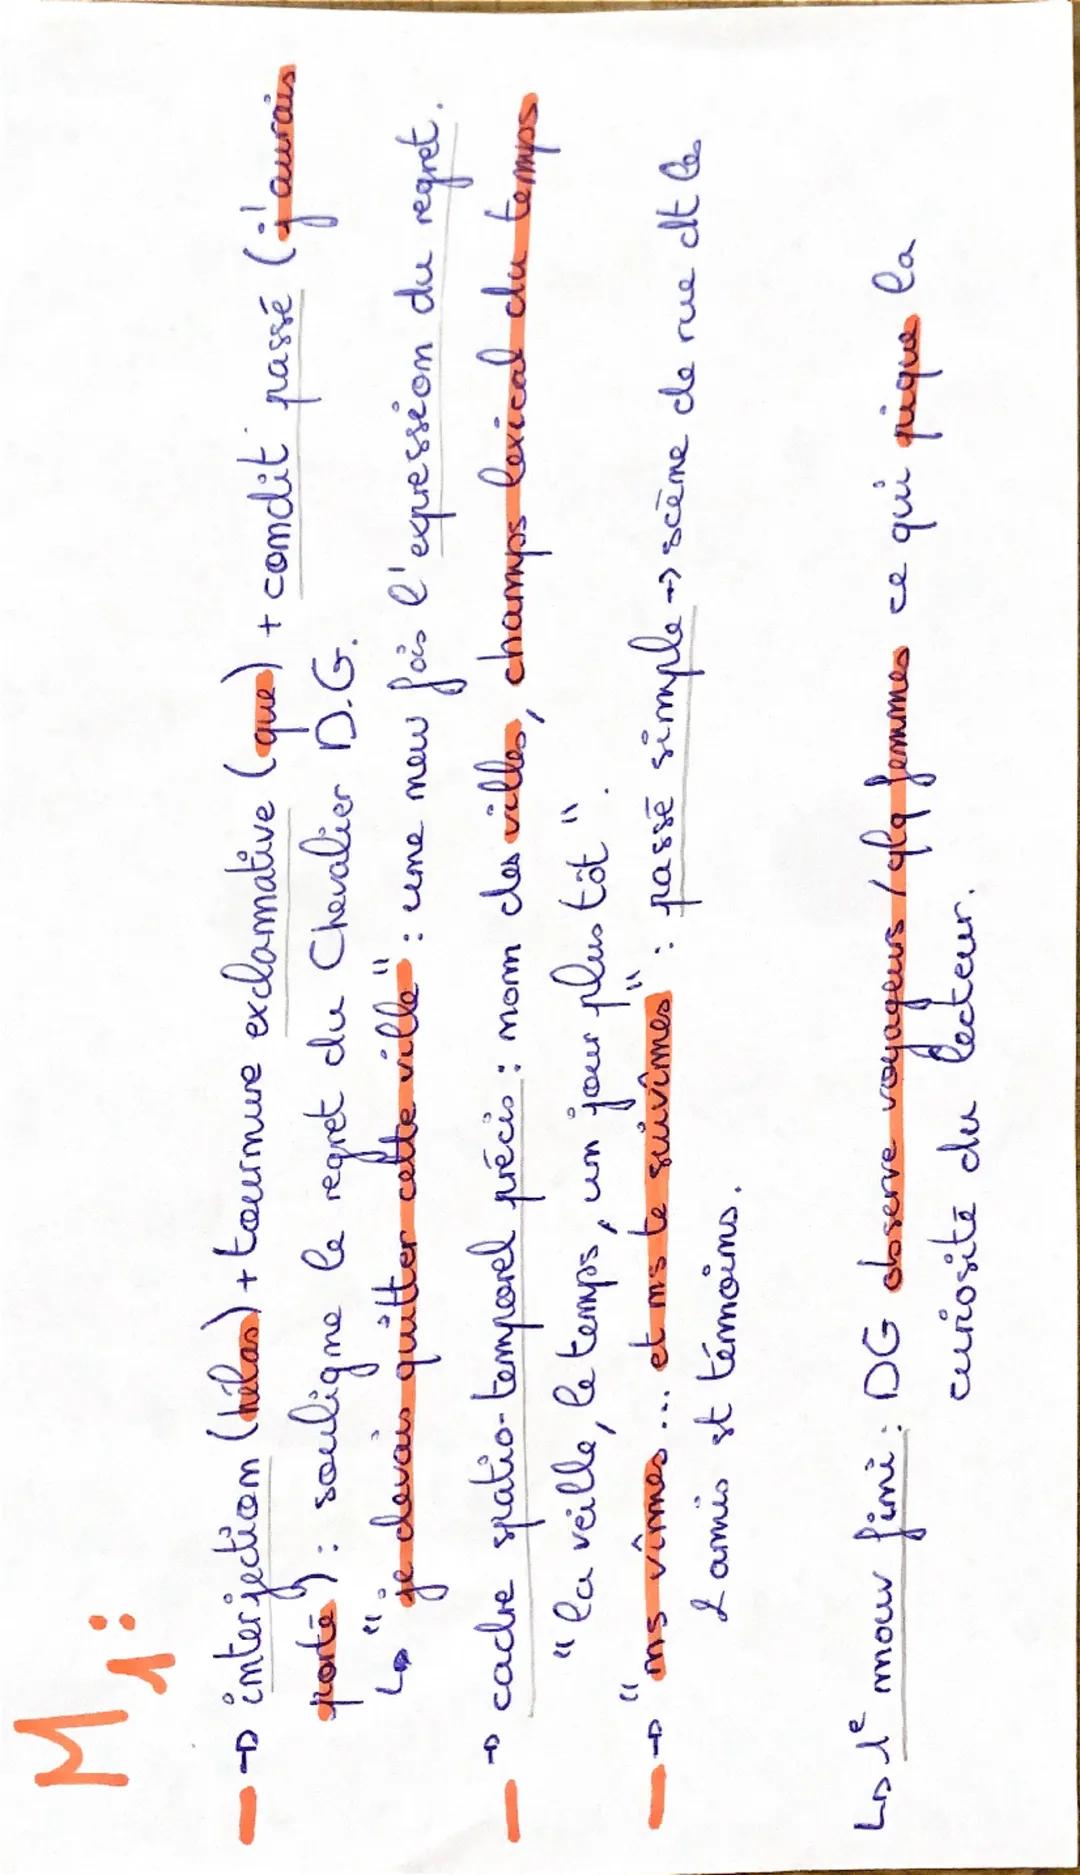 M1:
→ interjection (hélas) + tournure exclamative (que) + condit passé (j'aurais
porté) : souligne le regret du Chevalier D.G.
↳ "je devais quitter cette ville" : une nouv fois l'expression du regret.
→ cadre spatio-temporel précis : nom des villes, champs lexical du temps
"la veille, le temps, un jour plus tôt".
→ "ns vîmes... et ns te suivîmes" : passé simple → scène de rue dt les
2 amis st témoins.
↳ 1e mouv fini : DG observe voyageurs / qlq femmes ce qui pique la
curiosité du lecteur.